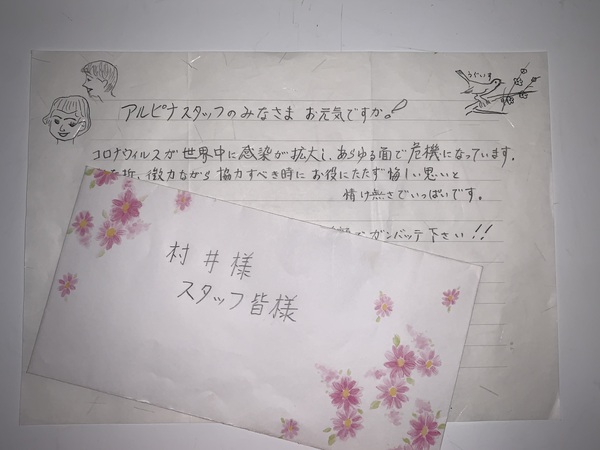 うぐいす
アルピナスタッフのみなさま お元気ですか!
コロナウィルスが世界中に感染が拡大し、あらゆる面で危機になっています。
折、微力ながら 協力すべき時に お役にたたず 悔しい思いと
情け無さでいっぱいです。
ガンバッテ下さい!!
村井様
スタッフ皆様